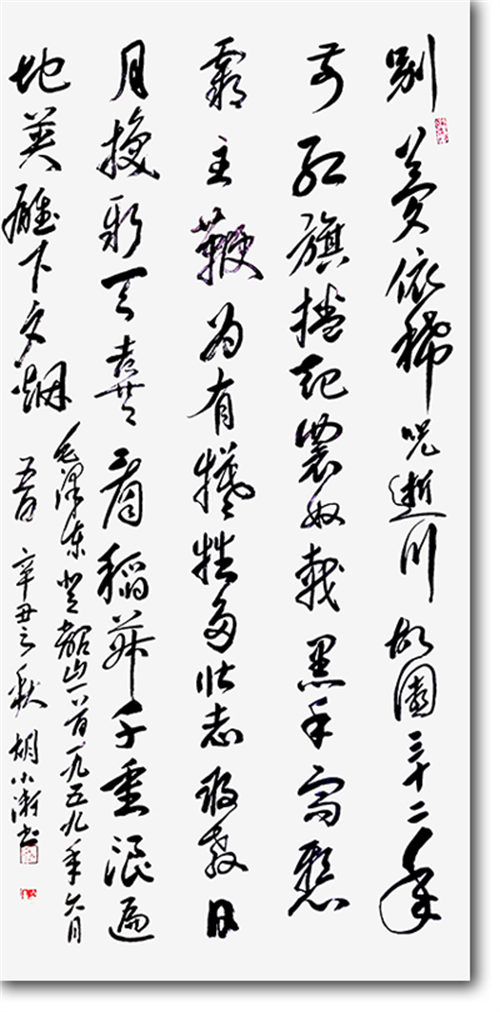 别夢依稀咒逝川故園三十二年
前红旗捲起農奴戟黑手高懸
霸主鞭为有犧牲多壮志敢教日
月换新天喜看稻菽千重浪遍
地英雄下夕烟
毛泽东登韶山一首一九五九年六月
五日 辛丑之秋 胡小 书